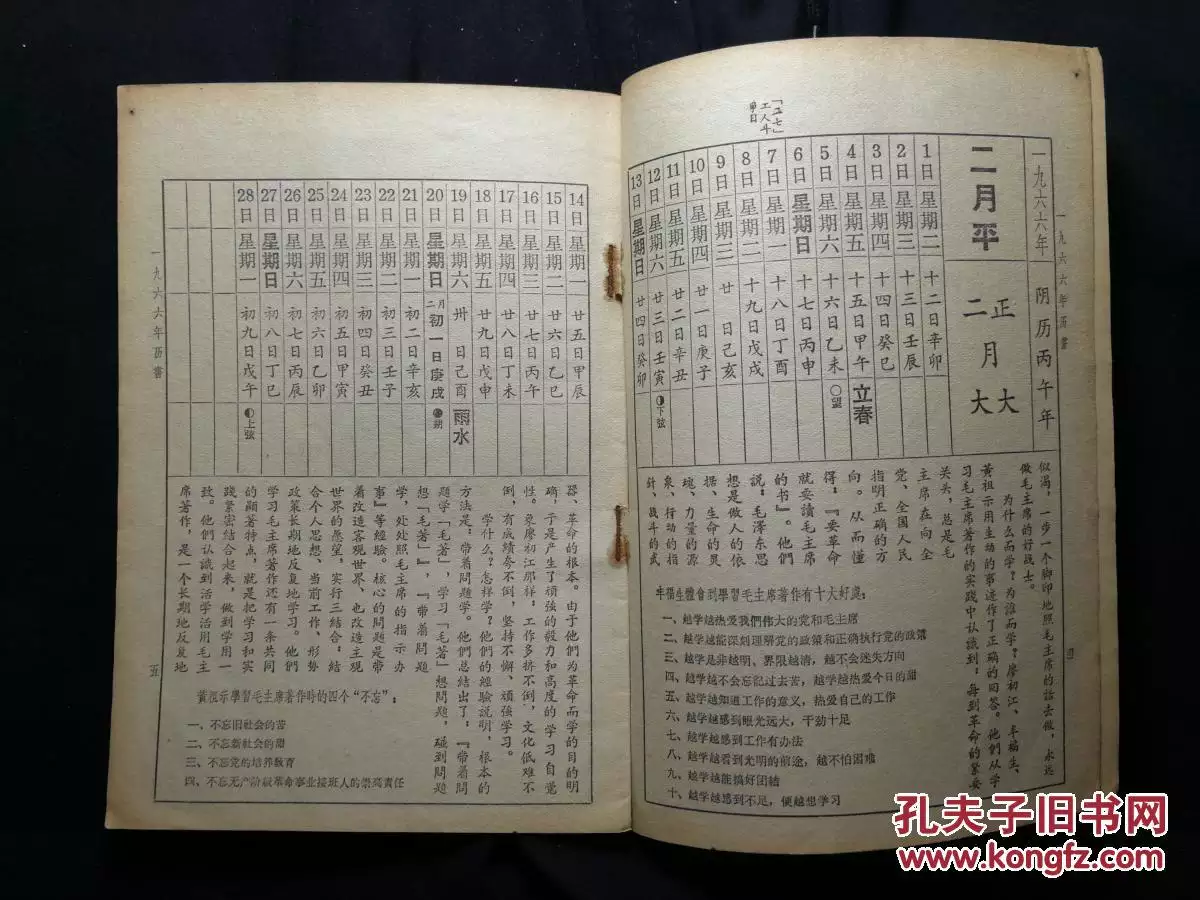 一九六六年历書
「二七」
工人斗
争日
一九六六年 阴历丙午年
二月平
正月大
二月大
1日 星期二 十二日辛卯
2日 星期三 十三日壬辰
3日 星期四 十四日癸巳
4日 星期五 十五日甲午 立春
5日 星期六 十六日乙未 ○望
6日 星期日 十七日丙申
7日 星期一 十八日丁酉
8日 星期二 十九日戊戌
9日 星期三 二十日己亥
10日 星期四 廿一日庚子
11日 星期五 廿二日辛丑
12日 星期六 廿三日壬寅 下弦
13日 星期日 廿四日癸卯
似渴，一步一个脚印地照毛主席的話去做，永远
做毛主席的好战士。
为什么而学？为誰而学？廖初江、丰福生、
黄祖示用生动的事迹作了正确的回答。他們从学
习毛主席著作的实踐中认識到：每到革命的紧要
关头，总是毛
主席在向全
党、全国人民
指明正确的方
向。从而懂
得：『要革命
就要讀毛主席
的书』。他們
說：毛澤东思
想是做人的依
据、生命的灵
魂、力量的源
泉、行动的指
針、战斗的武
丰福生體會到學習毛主席著作有十大好處：
一、越学越热爱我們伟大的党和毛主席
二、越学越能深刻理解党的政策和正确执行党的政策
三、越学是非越明、界限越清，越不会迷失方向
四、越学越不会忘記过去苦，越学越热爱今日的甜
五、越学越知道工作的意义，热爱自己的工作
六、越学越感到眼光远大，干劲十足
七、越学越感到工作有办法
八、越学越看到光明的前途，越不怕困难
九、越学越能搞好团結
十、越学越感到不足，便越想学习
四
14日 星期一 廿五日甲辰
15日 星期二 廿六日乙巳
16日 星期三 廿七日丙午
17日 星期四 廿八日丁未
18日 星期五 廿九日戊申
19日 星期六 卅日己酉 雨水
20日 星期日 二月初一日庚戌 朔
21日 星期一 初二日辛亥
22日 星期二 初三日壬子
23日 星期三 初四日癸丑
24日 星期四 初五日甲寅
25日 星期五 初六日乙卯
26日 星期六 初七日丙辰
27日 星期日 初八日丁巳
28日 星期一 初九日戊午 上弦
器、革命的根本。由于他們为革命而学的目的明
确，于是产生了頑强的毅力和高度的学习自觉
性。象廖初江那样，工作多挤不倒，文化低难不
倒，有成績夸不倒，坚持不懈、頑强学习。
学什么？怎样学？他們的經驗說明，根本的
方法是：带着問題学。他們总結出了：『带着問
題学「毛著」，学习「毛著」想問題，碰到問題
想「毛著」』，『带着問題
学，处处照毛主席的指示办
事』等經驗。核心的問題是带
着改造客观世界、也改造主观
世界的愿望，实行三結合：結
合个人思想、当前工作、形势
政策长期地反复地学习。他們
学习毛主席著作还有一条共同
的顯著特点，就是把学习和实
踐紧密結合起来，做到学用一
致。他們认識到活学活用毛主
席著作，是一个长期地反复地
黄祖示學習毛主席著作時的四个“不忘”：
一、不忘旧社会的苦
二、不忘新社会的甜
三、不忘党的培养教育
四、不忘无产阶級革命事业接班人的崇高責任
一九六六年历書
五
孔夫子旧书网
www.kongfz.com